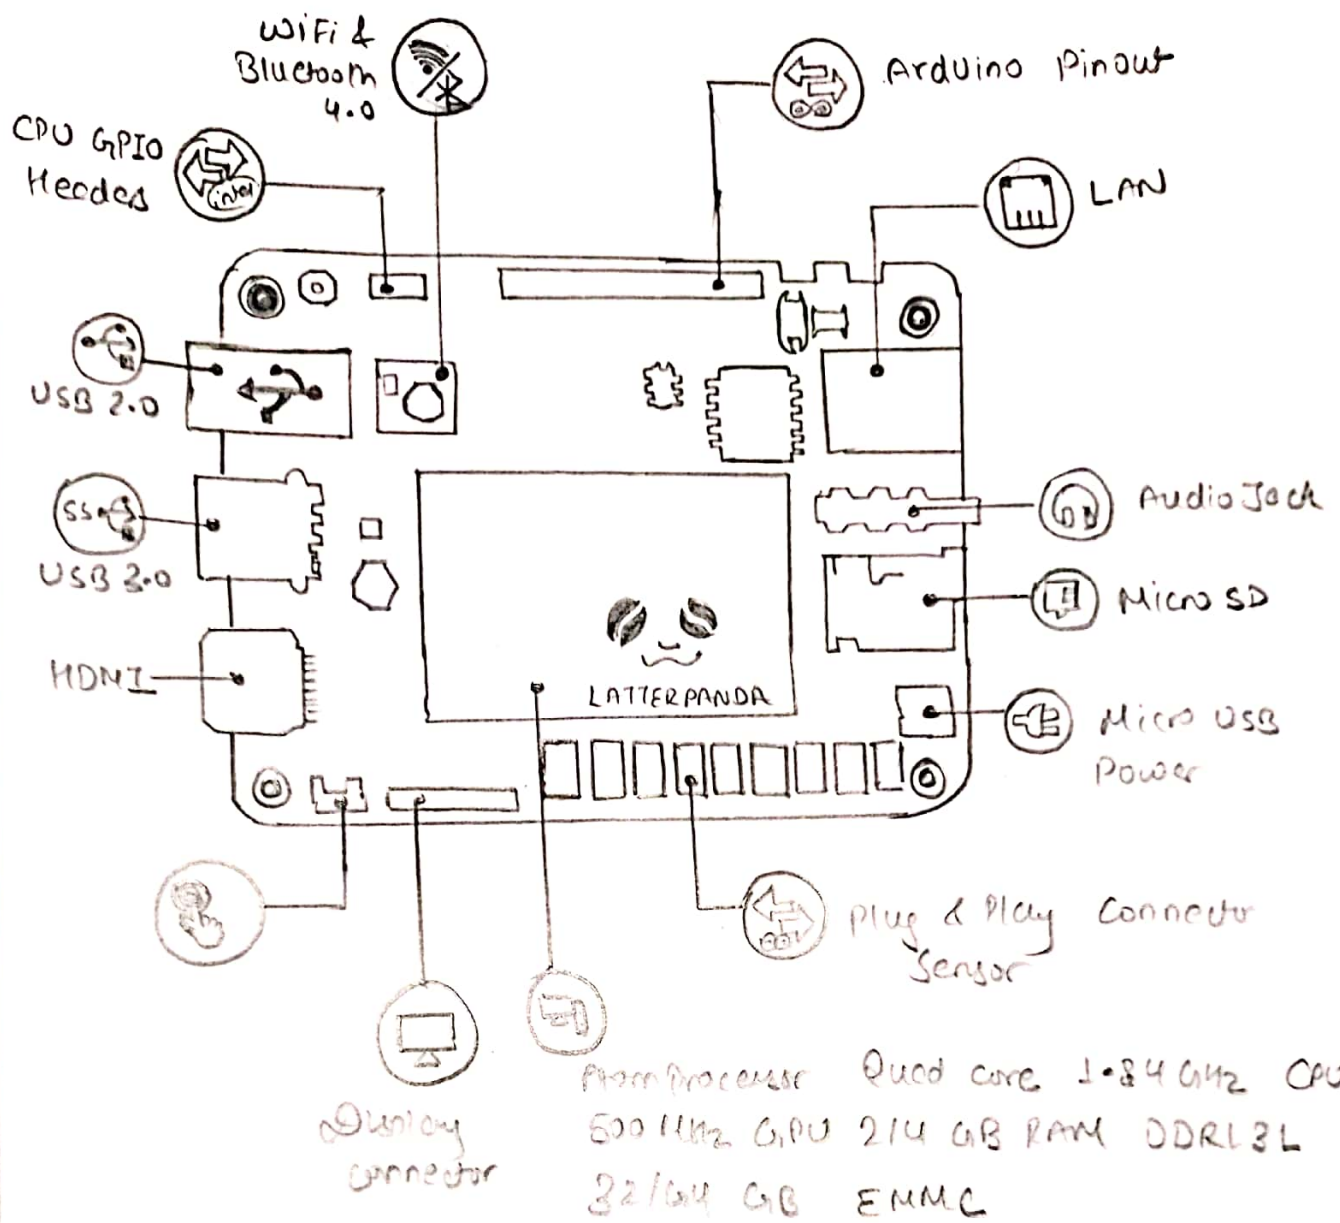 WiFi &
Bluetooth
4.0
Arduino Pinout
CPU GPIO
Header
intel
LAN
USB 2.0
SS
USB 3.0
Audio Jack
Micro SD
HDMI
LATTERPANDA
Micro USB
Power
Plug & Play Connector
Sensor
Display
connector
Atom Processor Quad core 1.84 GHz CPU
500 MHz GPU 2/4 GB RAM DDRL3L
32/64 GB EMMC